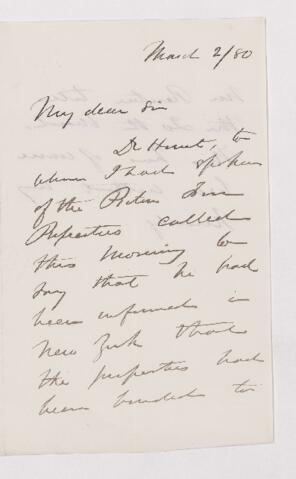 March 2/80
My dear Sir
Dr Hunt, to
whom I had spoken
of the Iron
Properties called
this morning to
say that he had
been informed in
New York that
the properties had
been bonded to